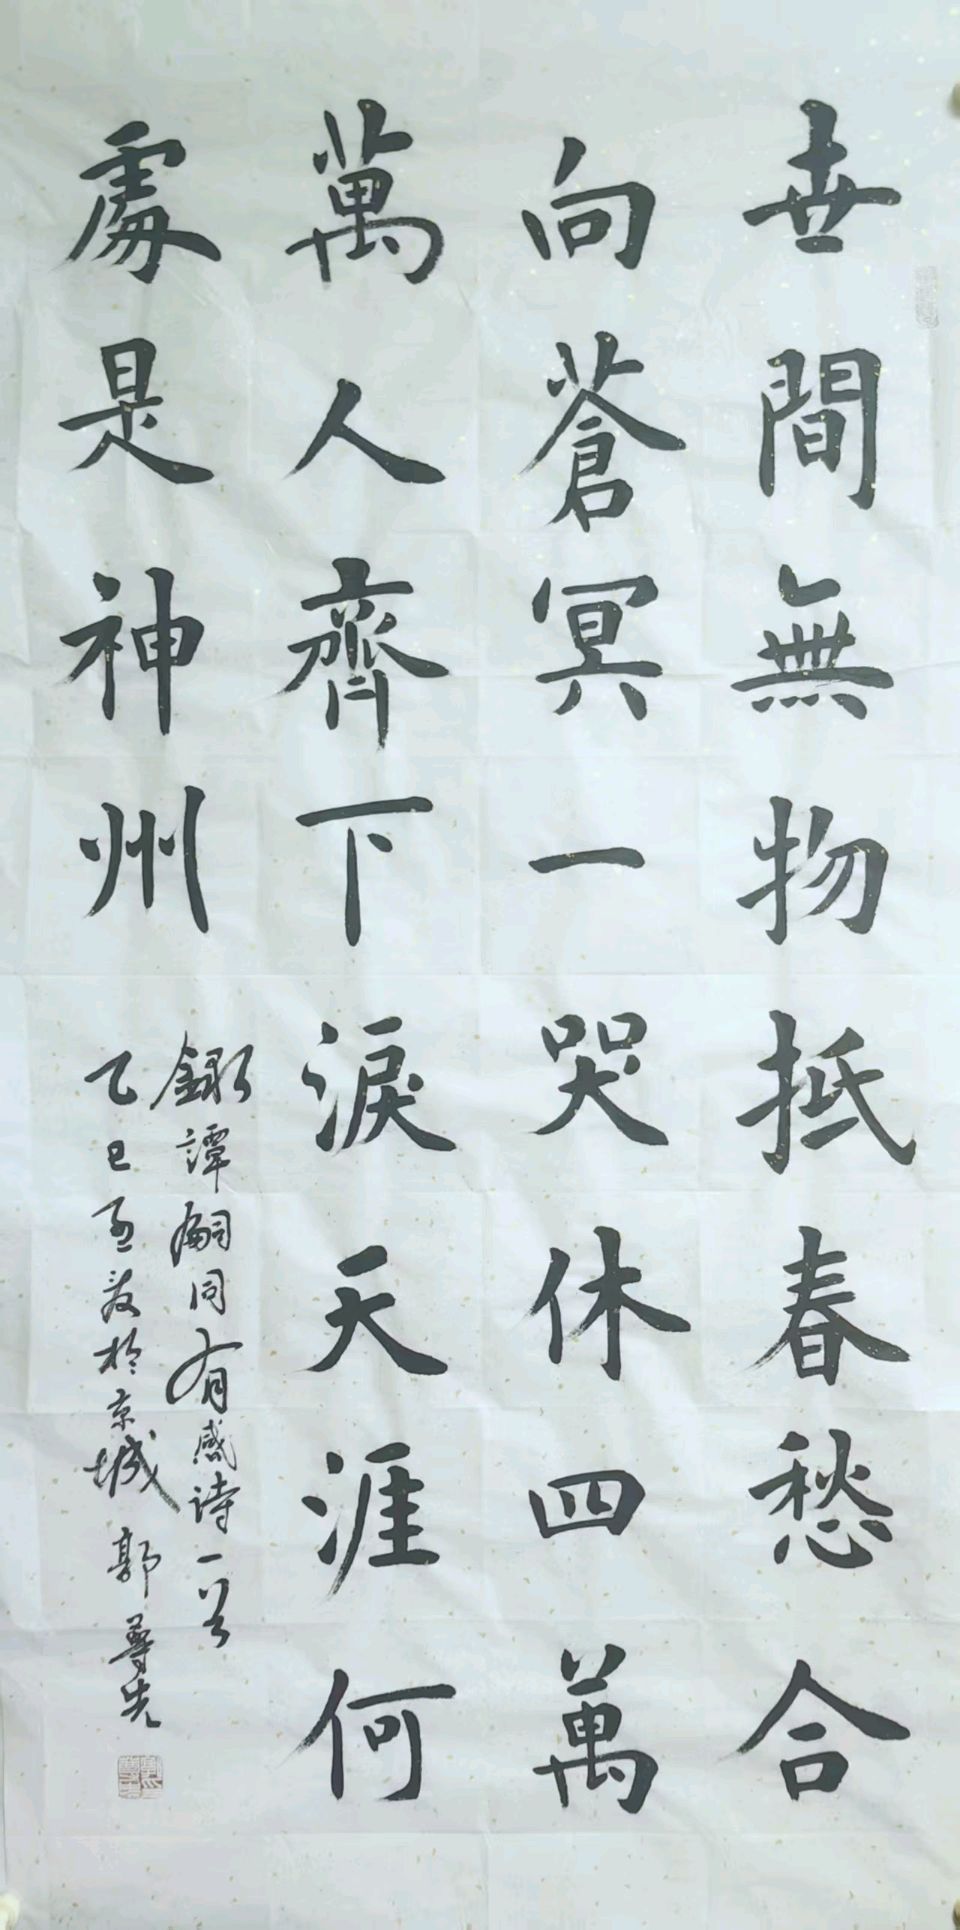 世間無物抵春愁合
向蒼冥一哭休四萬
萬人齊下淚天涯何
處是神州
錄譚嗣同有感詩一首
乙巳夏月於京城郭尊先